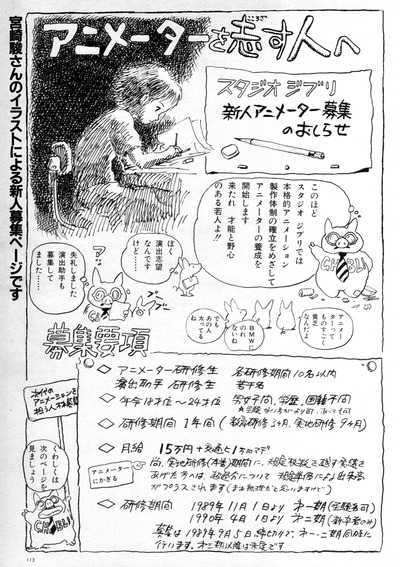 宮崎駿さんのイラストによる新人募集ページです
アニメーターを志す人へ
こころざ
スタジオ ジブリ
新人アニメーター募集
のおしらせ
このほど
スタジオ ジブリでは
本格的アニメーション
製作体制の確立をめざして
アニメーターの養成を
開始します
来たれ 才能と野心
のある若人よ!!
ぼく
演出志望
なんです
けど……
失礼しました
演出助手も
募集して
ました……
アニメー
ターって
ものすごく
貧乏
なんだよ
BMWに
のれ
ないね
でも
あの人
太ってる
ね
GHIBLI
募集要項
◇ アニメーター研修生 各研修期間10名以内
演出助手 研修生 若干名
◇ 年令18才位〜24才位 男女不問、学歴、国籍不問
◇ 研修期間 1年間 (教育研修3ヶ月、実地研修9ヶ月)
◇ 月給 15万円+交通費1万円マデ
アニメーター
にかぎる
尚、実地研修(作業)期間に、規定枚数を越す実績を
あげた方には、超過分について 規定単価による出来高
がプラスされます
◇ 研修期間 1989年11月1日より 第一期
1990年4月1日より 第二期 (新卒者のみ)
募集は1989年9月5日締切りで、第一、二期同時に
行います。第三期以降は未定です
次代の
アニメーションを
担う人材募集
くわしくは
次ページを
見ましょう
GHIBLI
113